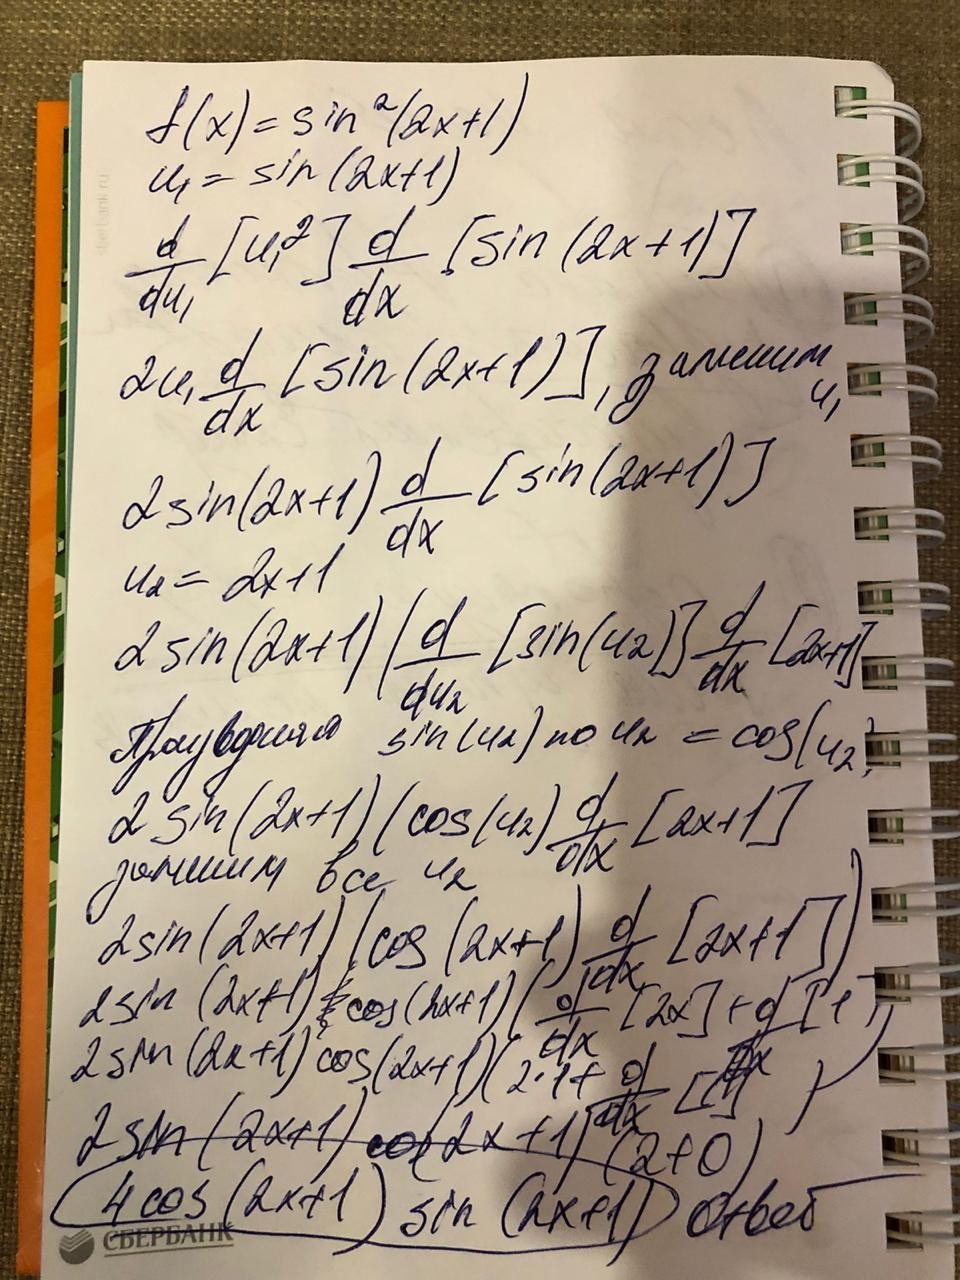 f(x) = sin²(2x+1)
u₁ = sin(2x+1)
d/du₁ [u₁²] d/dx [sin(2x+1)]
2u₁ d/dx [sin(2x+1)], заменим u₁
2sin(2x+1) d/dx [sin(2x+1)]
u₂ = 2x+1
2sin(2x+1) (d/du₂ [sin(u₂)] d/dx [2x+1]
Производная sin(u₂) по u₂ = cos(u₂)
2sin(2x+1) (cos(u₂) d/dx [2x+1]
заменим все u₂
2sin(2x+1) (cos(2x+1) d/dx [2x+1])
2sin(2x+1) cos(2x+1) (d/dx [2x] + d/dx [1])
2sin(2x+1) cos(2x+1) (2·1 + d/dx [1])
2sin(2x+1) cos(2x+1) (2+0)
4cos(2x+1) sin(2x+1) Ответ
СБЕРБАНК
sberbank.ru